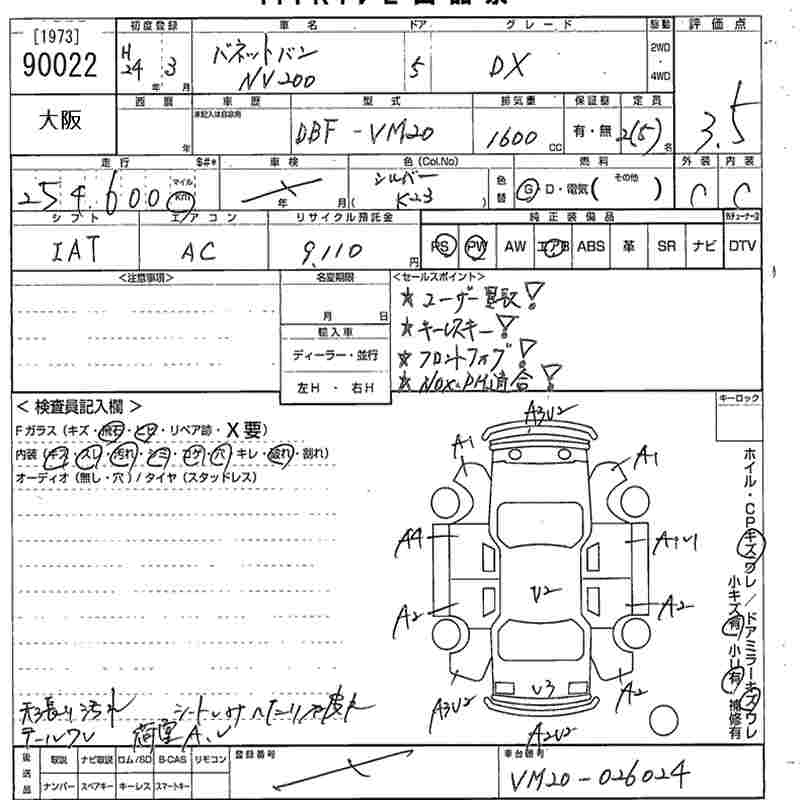 [1973]
90022
大阪
初度登録
H24 3
年 月
車名
バネットバン
NV200
ドア
5
グレード
DX
駆動
2WD
・
4WD
評価点
3.5
西暦
年
車歴
未記入は自家用
型式
DBF-VM20
排気量
1600 CC
保証書
有・無
定員
2(5)名
走行 $#*
254,600
マイル
km
車検
年 月
色(Col.No)
シルバー
( K23 )
色替
燃料
G・D・電気( その他 )
外装
C
内装
C
シフト
IAT
エアコン
AC
リサイクル預託金
9,110 円
純正装備品
PS PW AW エアB ABS 革 SR ナビ DTV
<注意事項>
名変期限
月 日
輸入車
ディーラー・並行
左H・右H
<セールスポイント>
★ユーザー買取!
★キーレスキー!
★フロントフォグ!
★NOX・PM適合!
<検査員記入欄>
Fガラス(キズ・飛石・ヒビ・リペア跡・X要)
内装(キズ・スレ・汚れ・シミ・コゲ・穴・キレ・破れ・割れ)
オーディオ(無し・穴)/タイヤ(スタッドレス)
キーロック
ホイル・CPキズワレ/ドアミラーキズワレ
小キズ有 小U有・補修有
A3U2
A1
A1
A4
A1U1
U2
A2
A2
U3
A3U2
A2
A2U2
天張り汚れ
テールワレ
荷室A,U
後送品
取説 ナビ取説 ロム/SD B-CAS リモコン
ナンバー スペアキー キーレス スマートキー
登録番号
車台番号
VM20-026024